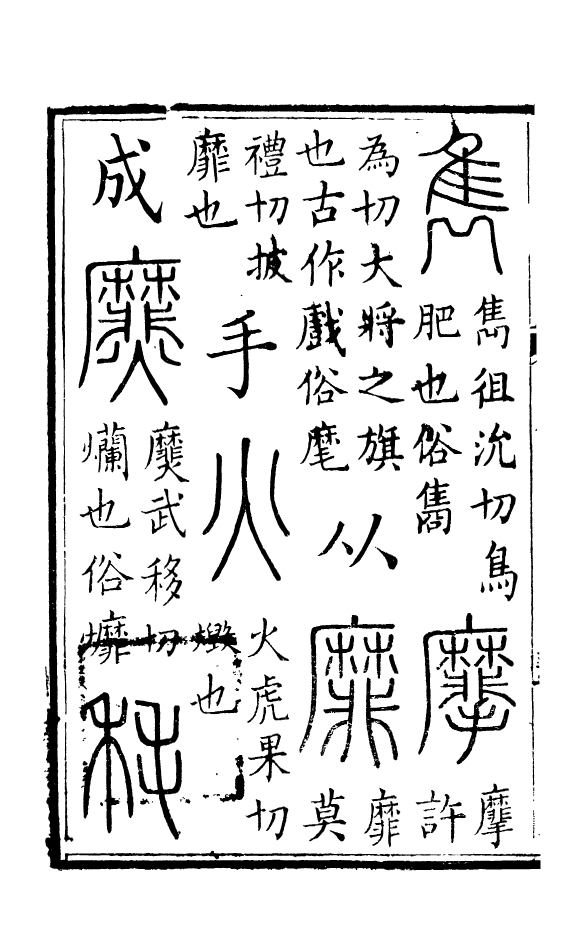 雋
雋徂沇切鳥
肥也俗
許
為切大將之旗
也古作戲俗麾
从
靡
靡莫
禮切披
靡也
手
火
火虎果切
燬也
成
爢
爢武移切
爛也俗
秏